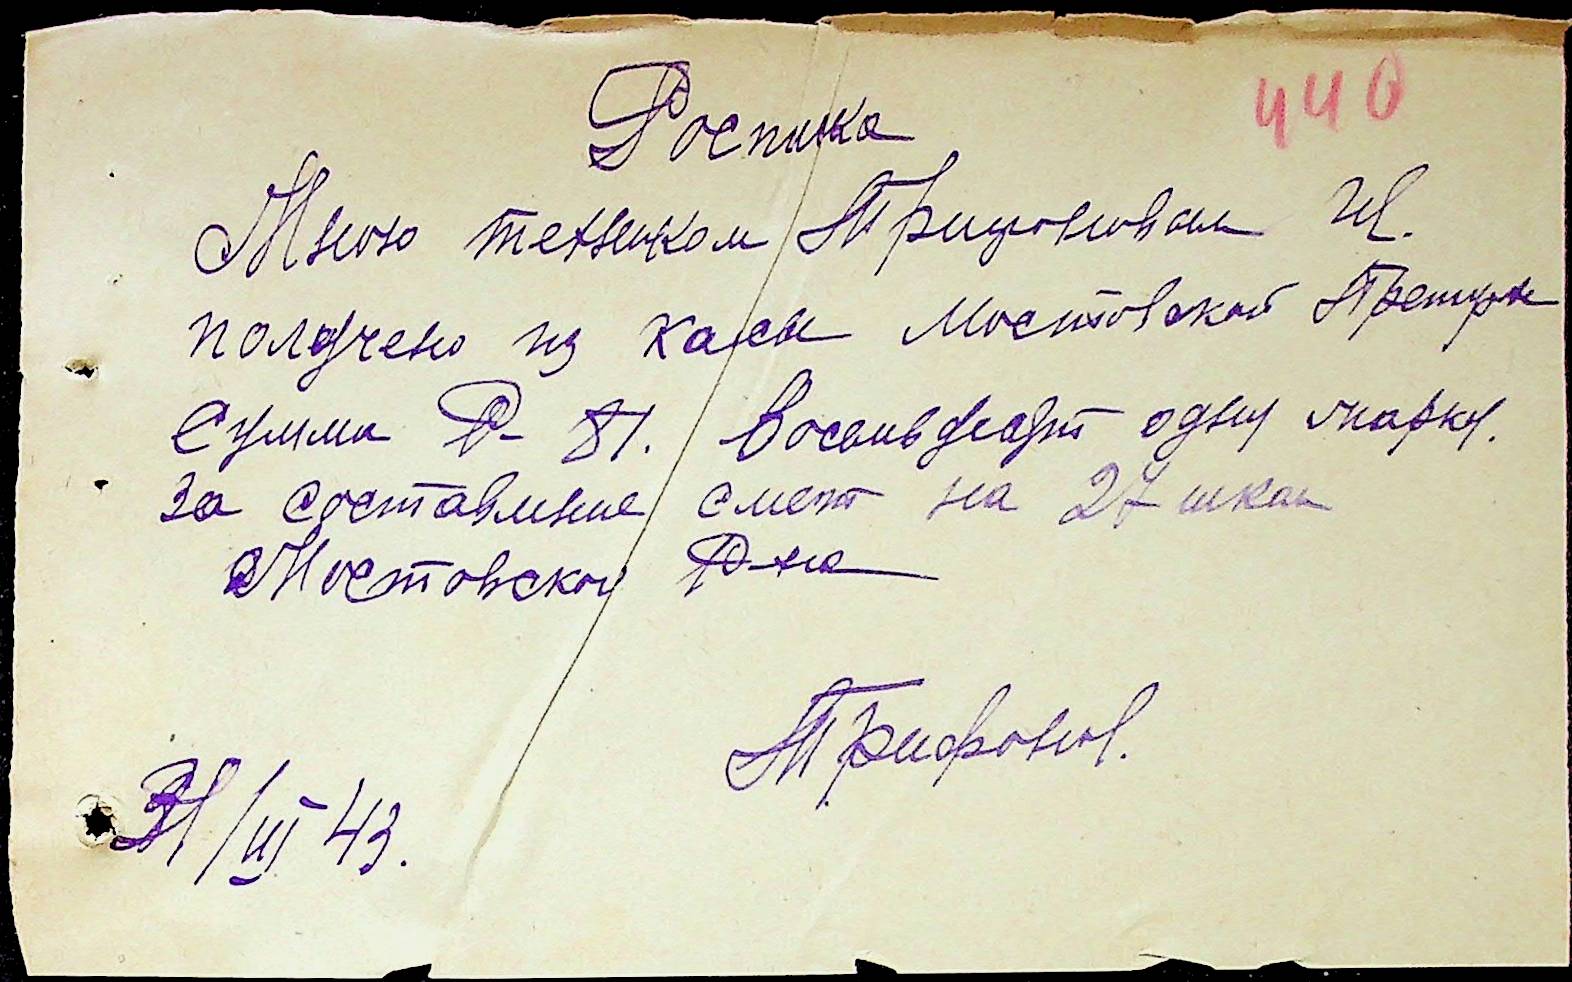 440
Роспика
Мною техником Трифоновым И.
получено из кассы Мостовской
сумма Р- 81. Восемьдесят одну марку.
за составление смет на 27 школ
Мостовской Р-на
Трифонов.
31/III 43.